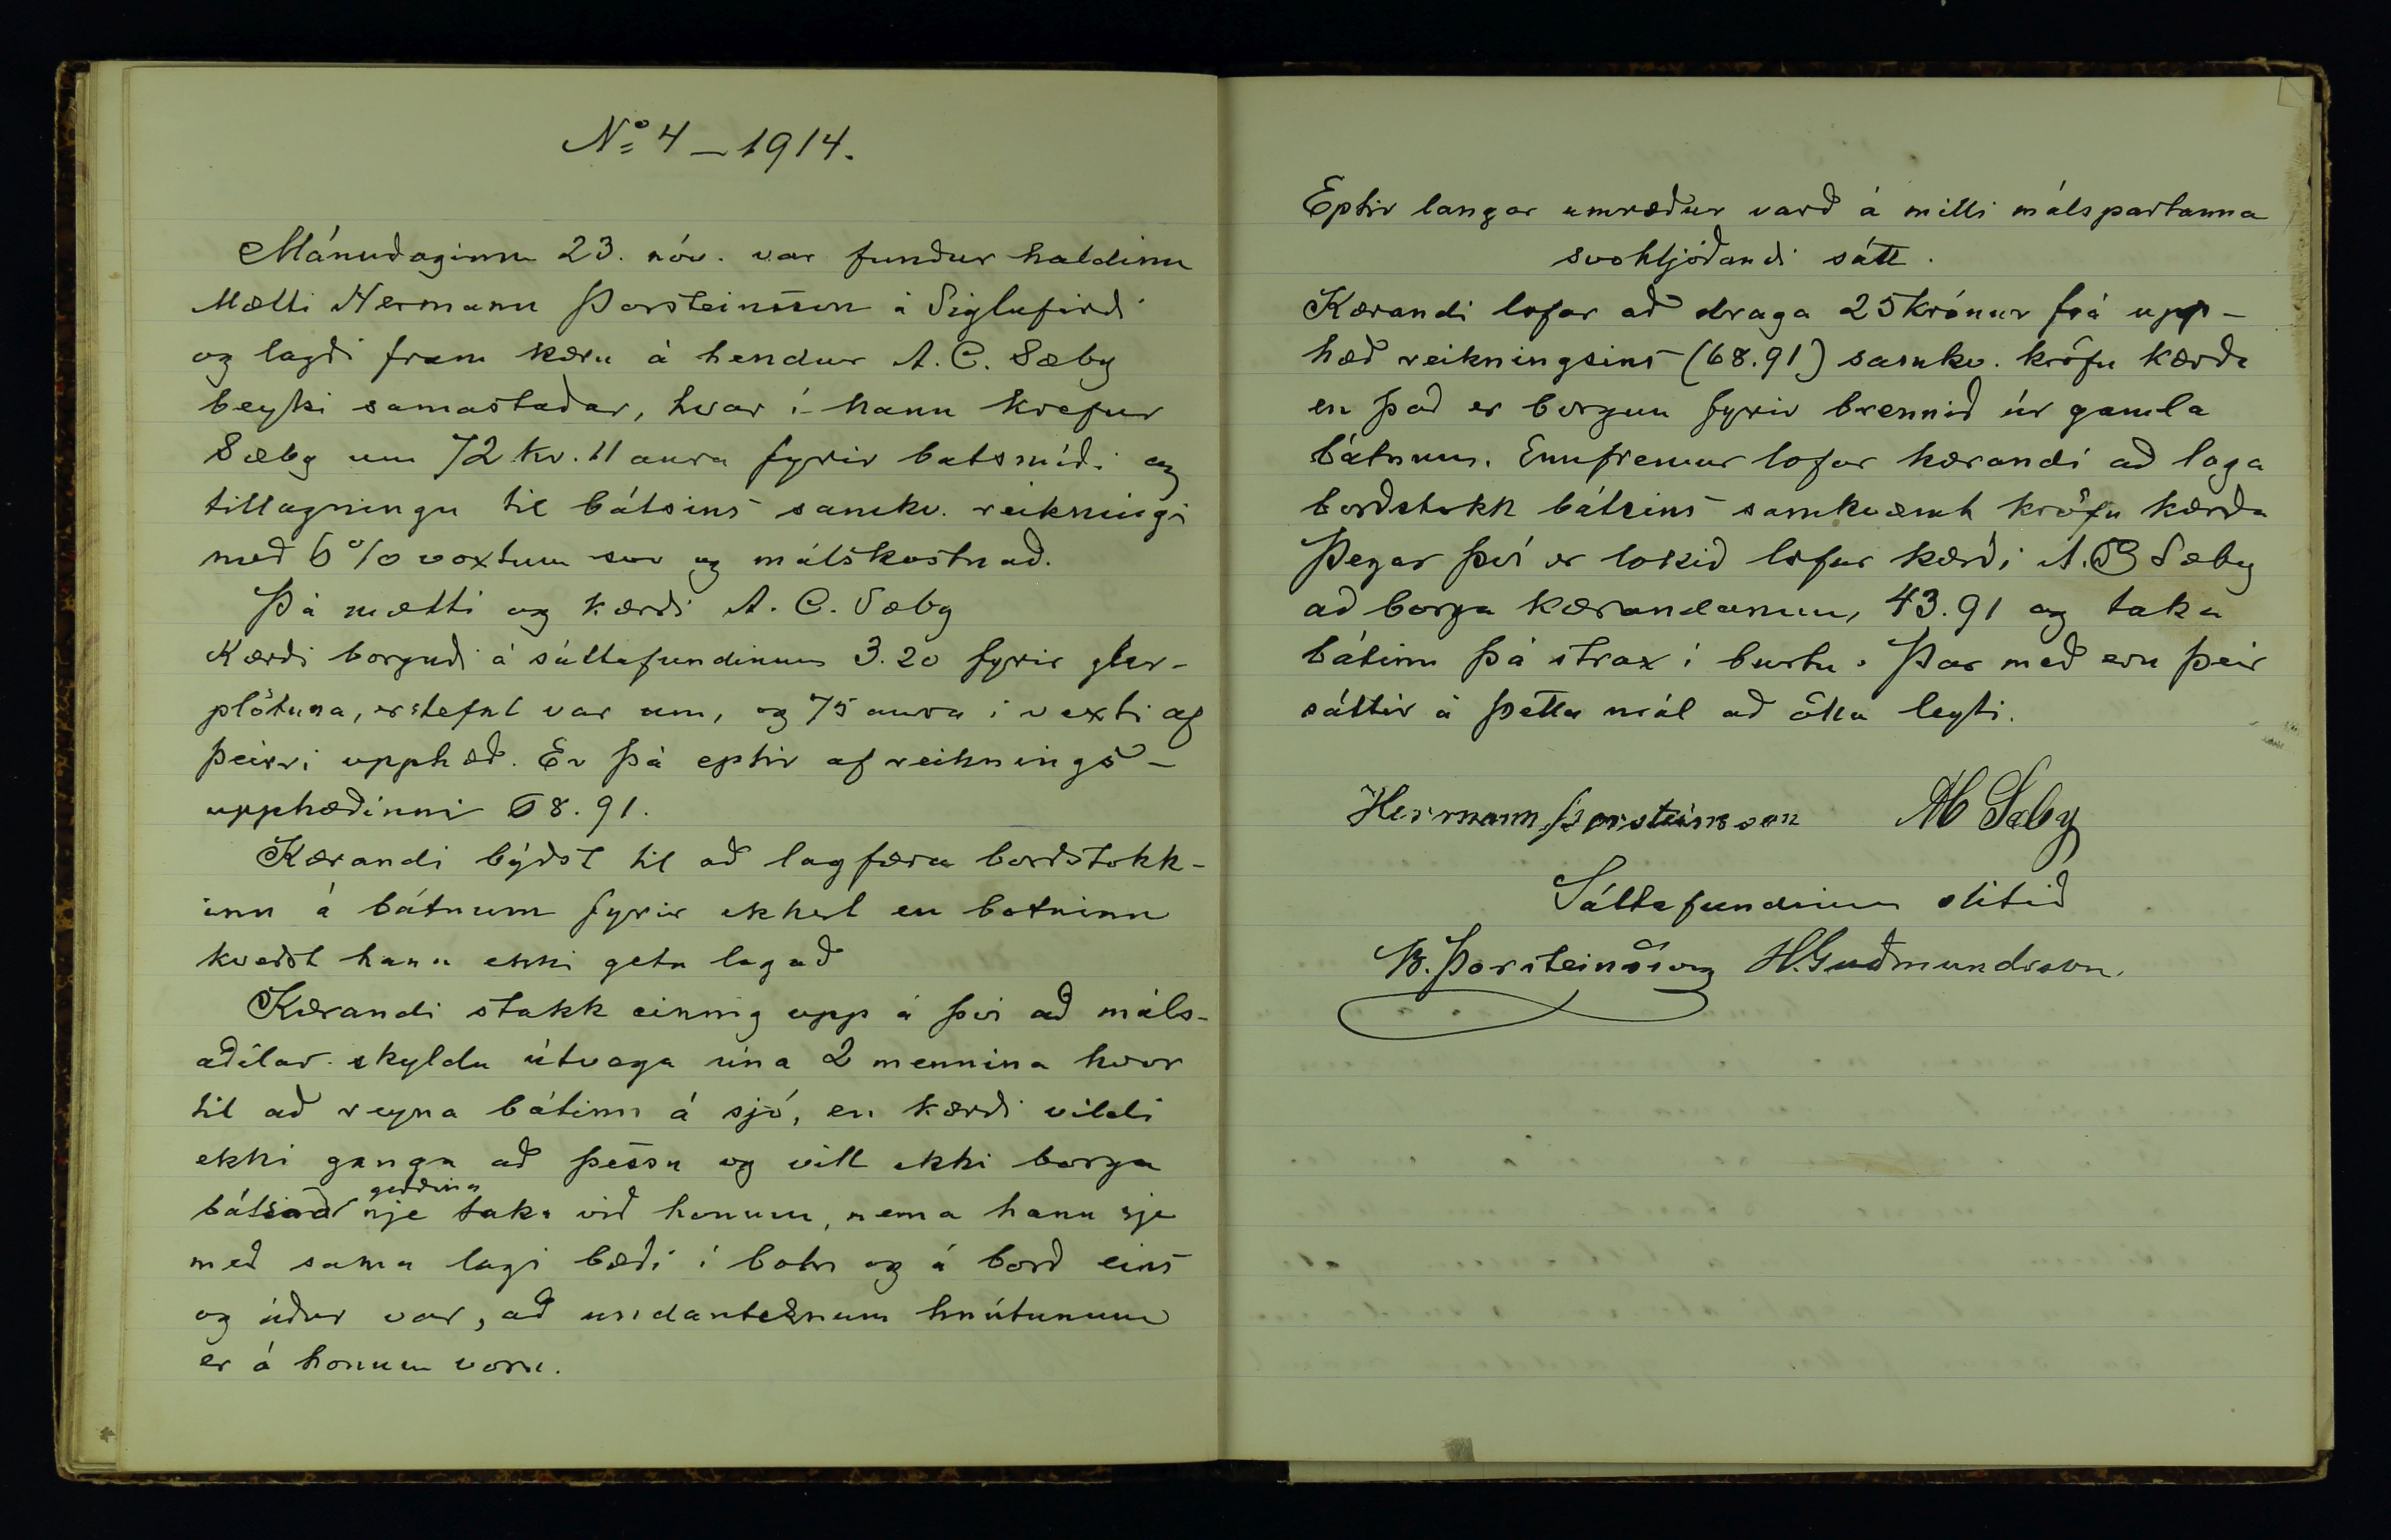 No 4 – 1914.
Mánudaginn 23. nóv. var fundur haldinn
Mætti Hermann Þorsteinsson á Siglufirði
og lagði fram kæru á hendur A. C. Sæby
beyki samastaðar, hvar í hann krefur
Sæby um 72 kr. 11 aura fyrir batsmíði og
tillagningu til bátsins samkv. reikningi
með 6% voxtum svo og málskostnað.
Þá mætti og kærði A. C. Sæby
Kærði borguði á sáttafundinum 3.20 fyrir gler-
plötuna, er stefnt var um, og 75 aura í vexti af
þeirri upphæð. Er þá eptir af reiknings-
upphæðinni 68.91.
Kærandi býðst til að lagfæra borðstokk-
inn á bátnum fyrir ekkert en botninn
kveðst hann ekki geta lagað
Kærandi stakk einnig upp á því að máls-
aðilar skyldu útvega sína 2 mennina hvor
til að reyna bátinn á sjó, en kærði vildi
ekki ganga að þessu og vill ekki borga
nje taka við honum, nema hann sje
með sama lagi bæði í botn og á borð eins
og áður var, að undanteknum hnútunum
er á honum voru.
Eptir langar umræður varð á milli málspartanna
svohljóðandi sátt.
Kærandi lofar að draga 25 krónur frá upp-
hæð reikningsins (68.91) samkv. kröfu kærða
en það er borgun fyrir brennið úr gamla
bátnum. Ennfremur lofar kærandi að laga
borðstokk bátsins samkvæmt kröfu kærða
Þegar því er lokið lofar kærði A. C. Sæby
að borga kærandanum, 43.91 og taka
bátinn þá strax í burtu. Þar með eru þeir
sáttir á þetta mál að öllu leyti.
Hermann Þorsteinsson AC Sæby
Sáttafundinum slitið
B. Þorsteinsson H. Guðmundsson.